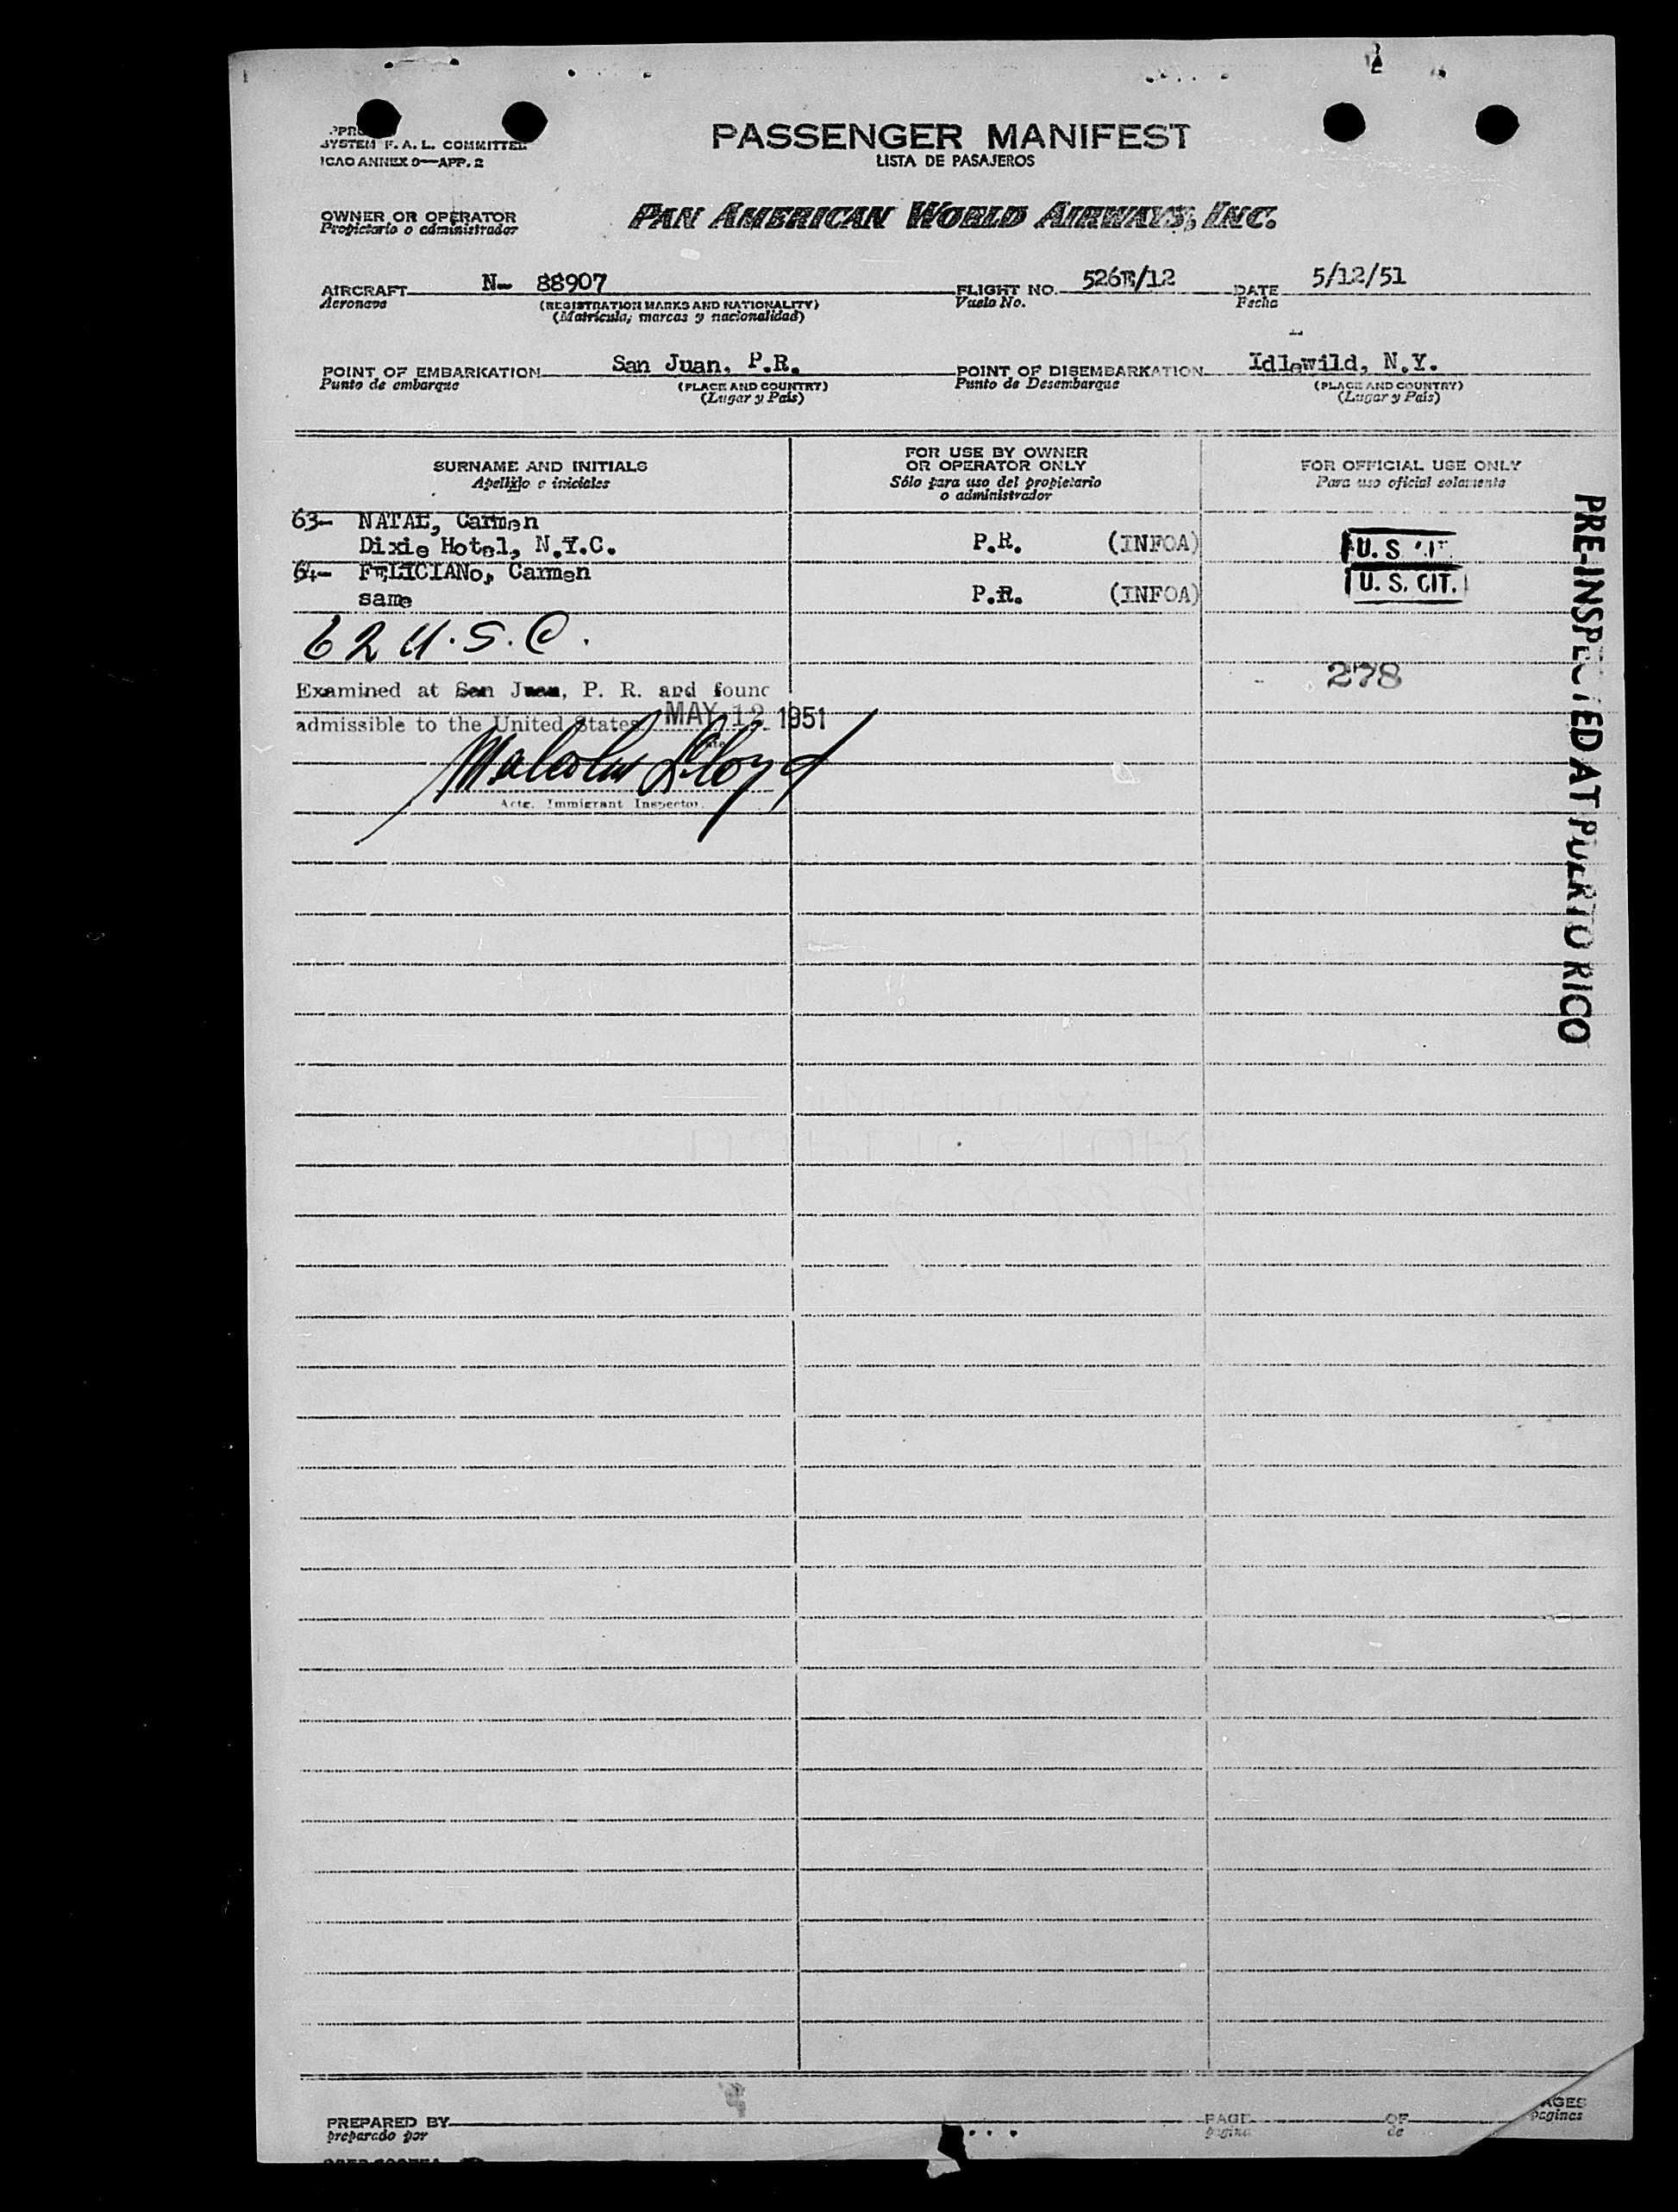 SYSTEM F. A. L. COMMITTEE
ICAO ANNEX 9—APP. 2
PASSENGER MANIFEST
LISTA DE PASAJEROS
OWNER OR OPERATOR
Propietario o administrador
PAN AMERICAN WORLD AIRWAYS, INC.
AIRCRAFT N- 88907 FLIGHT NO. 526E/12 DATE 5/12/51
Aeronave (REGISTRATION MARKS AND NATIONALITY) Vuelo No. Fecha
(Matrícula, marcas y nacionalidad)
POINT OF EMBARKATION San Juan, P.R. POINT OF DISEMBARKATION Idlewild, N.Y.
Punto de embarque (PLACE AND COUNTRY) Punto de Desembarque (PLACE AND COUNTRY)
(Lugar y País) (Lugar y País)
SURNAME AND INITIALS
Apellido e iniciales
FOR USE BY OWNER
OR OPERATOR ONLY
Sólo para uso del propietario
o administrador
FOR OFFICIAL USE ONLY
Para uso oficial solamente
63- NATAL, Carmen
Dixie Hotel, N.Y.C. P.R. (INFOA) U. S. CIT.
64- FELICIANo, Carmen
same P.R. (INFOA) U. S. CIT.
62 U.S.C.
278
Examined at San Juan, P. R. and found
admissible to the United States MAY 12 1951
Malcolm Lloyd
Actg. Immigrant Inspector.
PRE-INSPECTED AT PUERTO RICO
PREPARED BY PAGE OF PAGES
preparado por página de páginas